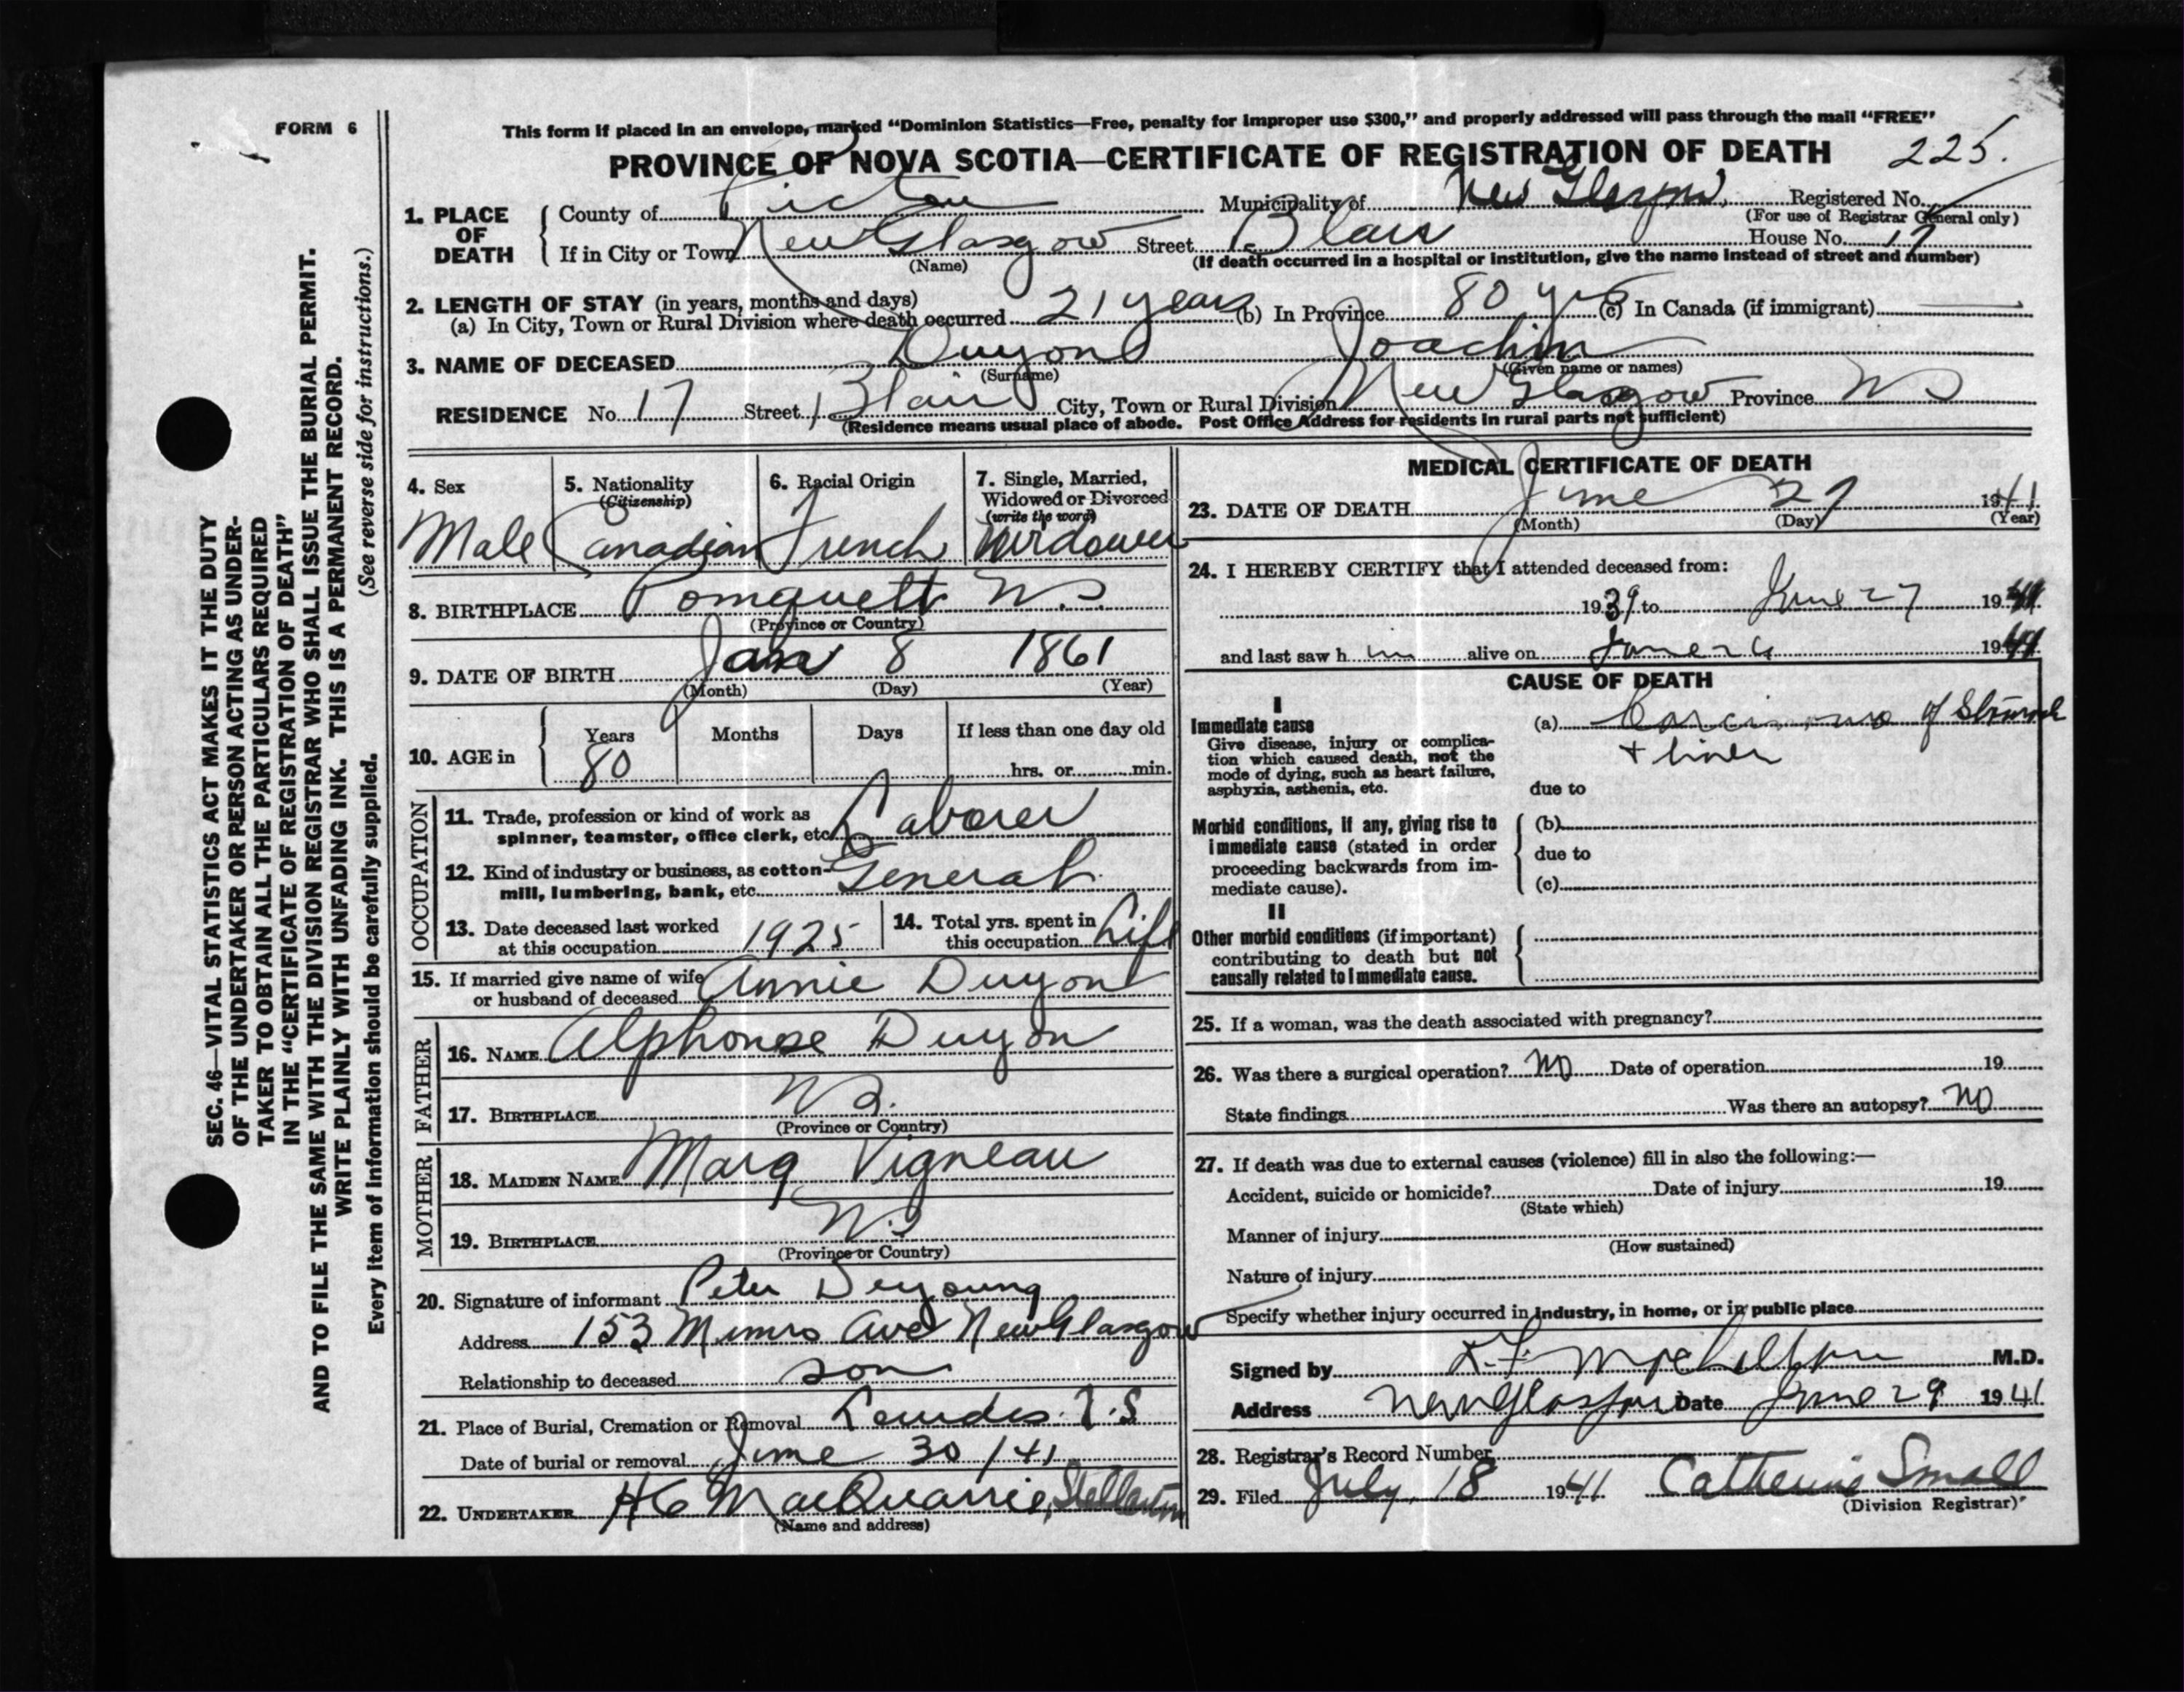 FORM 6
This form if placed in an envelope, marked "Dominion Statistics—Free, penalty for improper use $300," and properly addressed will pass through the mail "FREE"
PROVINCE OF NOVA SCOTIA—CERTIFICATE OF REGISTRATION OF DEATH 225.
1. PLACE OF DEATH { County of Pictou Municipality of New Glasgow Registered No.
(For use of Registrar General only)
If in City or Town New Glasgow Street Blair House No. 17
(Name) (If death occurred in a hospital or institution, give the name instead of street and number)
2. LENGTH OF STAY (in years, months and days)
(a) In City, Town or Rural Division where death occurred 21 years (b) In Province 80 yrs (c) In Canada (if immigrant)
3. NAME OF DECEASED Duyon Joachin
(Surname) (Given name or names)
RESIDENCE No. 17 Street Blair City, Town or Rural Division New Glasgow Province NS
(Residence means usual place of abode. Post Office Address for residents in rural parts not sufficient)
4. Sex 5. Nationality (Citizenship) 6. Racial Origin 7. Single, Married, Widowed or Divorced (write the word)
Male Canadian French Widower
8. BIRTHPLACE Pomquett N.S.
(Province or Country)
9. DATE OF BIRTH Jan 8 1861
(Month) (Day) (Year)
10. AGE in { Years Months Days If less than one day old
80 hrs. or min.
OCCUPATION
11. Trade, profession or kind of work as spinner, teamster, office clerk, etc. Laborer
12. Kind of industry or business, as cotton-mill, lumbering, bank, etc. General
13. Date deceased last worked at this occupation 1925 14. Total yrs. spent in this occupation Life
15. If married give name of wife or husband of deceased Annie Duyon
FATHER
16. NAME Alphonse Duyon
17. BIRTHPLACE N.S.
(Province or Country)
MOTHER
18. MAIDEN NAME Marg Vigneau
19. BIRTHPLACE N.S
(Province or Country)
20. Signature of informant Peter Deyoung
Address 153 Munro Ave New Glasgow
Relationship to deceased son
21. Place of Burial, Cremation or Removal Lourdes. N.S
Date of burial or removal June 30/41
22. UNDERTAKER HG MacQuarrie, Stellarton
(Name and address)
MEDICAL CERTIFICATE OF DEATH
23. DATE OF DEATH June 27 1941
(Month) (Day) (Year)
24. I HEREBY CERTIFY that I attended deceased from:
1939 to June 27 1941
and last saw h im alive on June 26 1941
CAUSE OF DEATH
I
Immediate cause (a) Carcinoma of Stomach
Give disease, injury or complication which caused death, not the mode of dying, such as heart failure, asphyxia, asthenia, etc.
+ liver
due to
Morbid conditions, if any, giving rise to immediate cause (stated in order proceeding backwards from immediate cause).
(b)
due to
(c)
II
Other morbid conditions (if important) contributing to death but not causally related to immediate cause.
25. If a woman, was the death associated with pregnancy?
26. Was there a surgical operation? No Date of operation 19
State findings Was there an autopsy? No
27. If death was due to external causes (violence) fill in also the following:—
Accident, suicide or homicide? Date of injury 19
(State which)
Manner of injury
(How sustained)
Nature of injury
Specify whether injury occurred in industry, in home, or in public place
Signed by M.D.
Address New Glasgow Date June 29 1941
28. Registrar's Record Number
29. Filed July 18 1941 Catherine Small
(Division Registrar)
SEC. 46—VITAL STATISTICS ACT MAKES IT THE DUTY
OF THE UNDERTAKER OR PERSON ACTING AS UNDER-
TAKER TO OBTAIN ALL THE PARTICULARS REQUIRED
IN THE "CERTIFICATE OF REGISTRATION OF DEATH"
AND TO FILE THE SAME WITH THE DIVISION REGISTRAR WHO SHALL ISSUE THE BURIAL PERMIT.
WRITE PLAINLY WITH UNFADING INK. THIS IS A PERMANENT RECORD.
Every item of information should be carefully supplied. (See reverse side for instructions.)